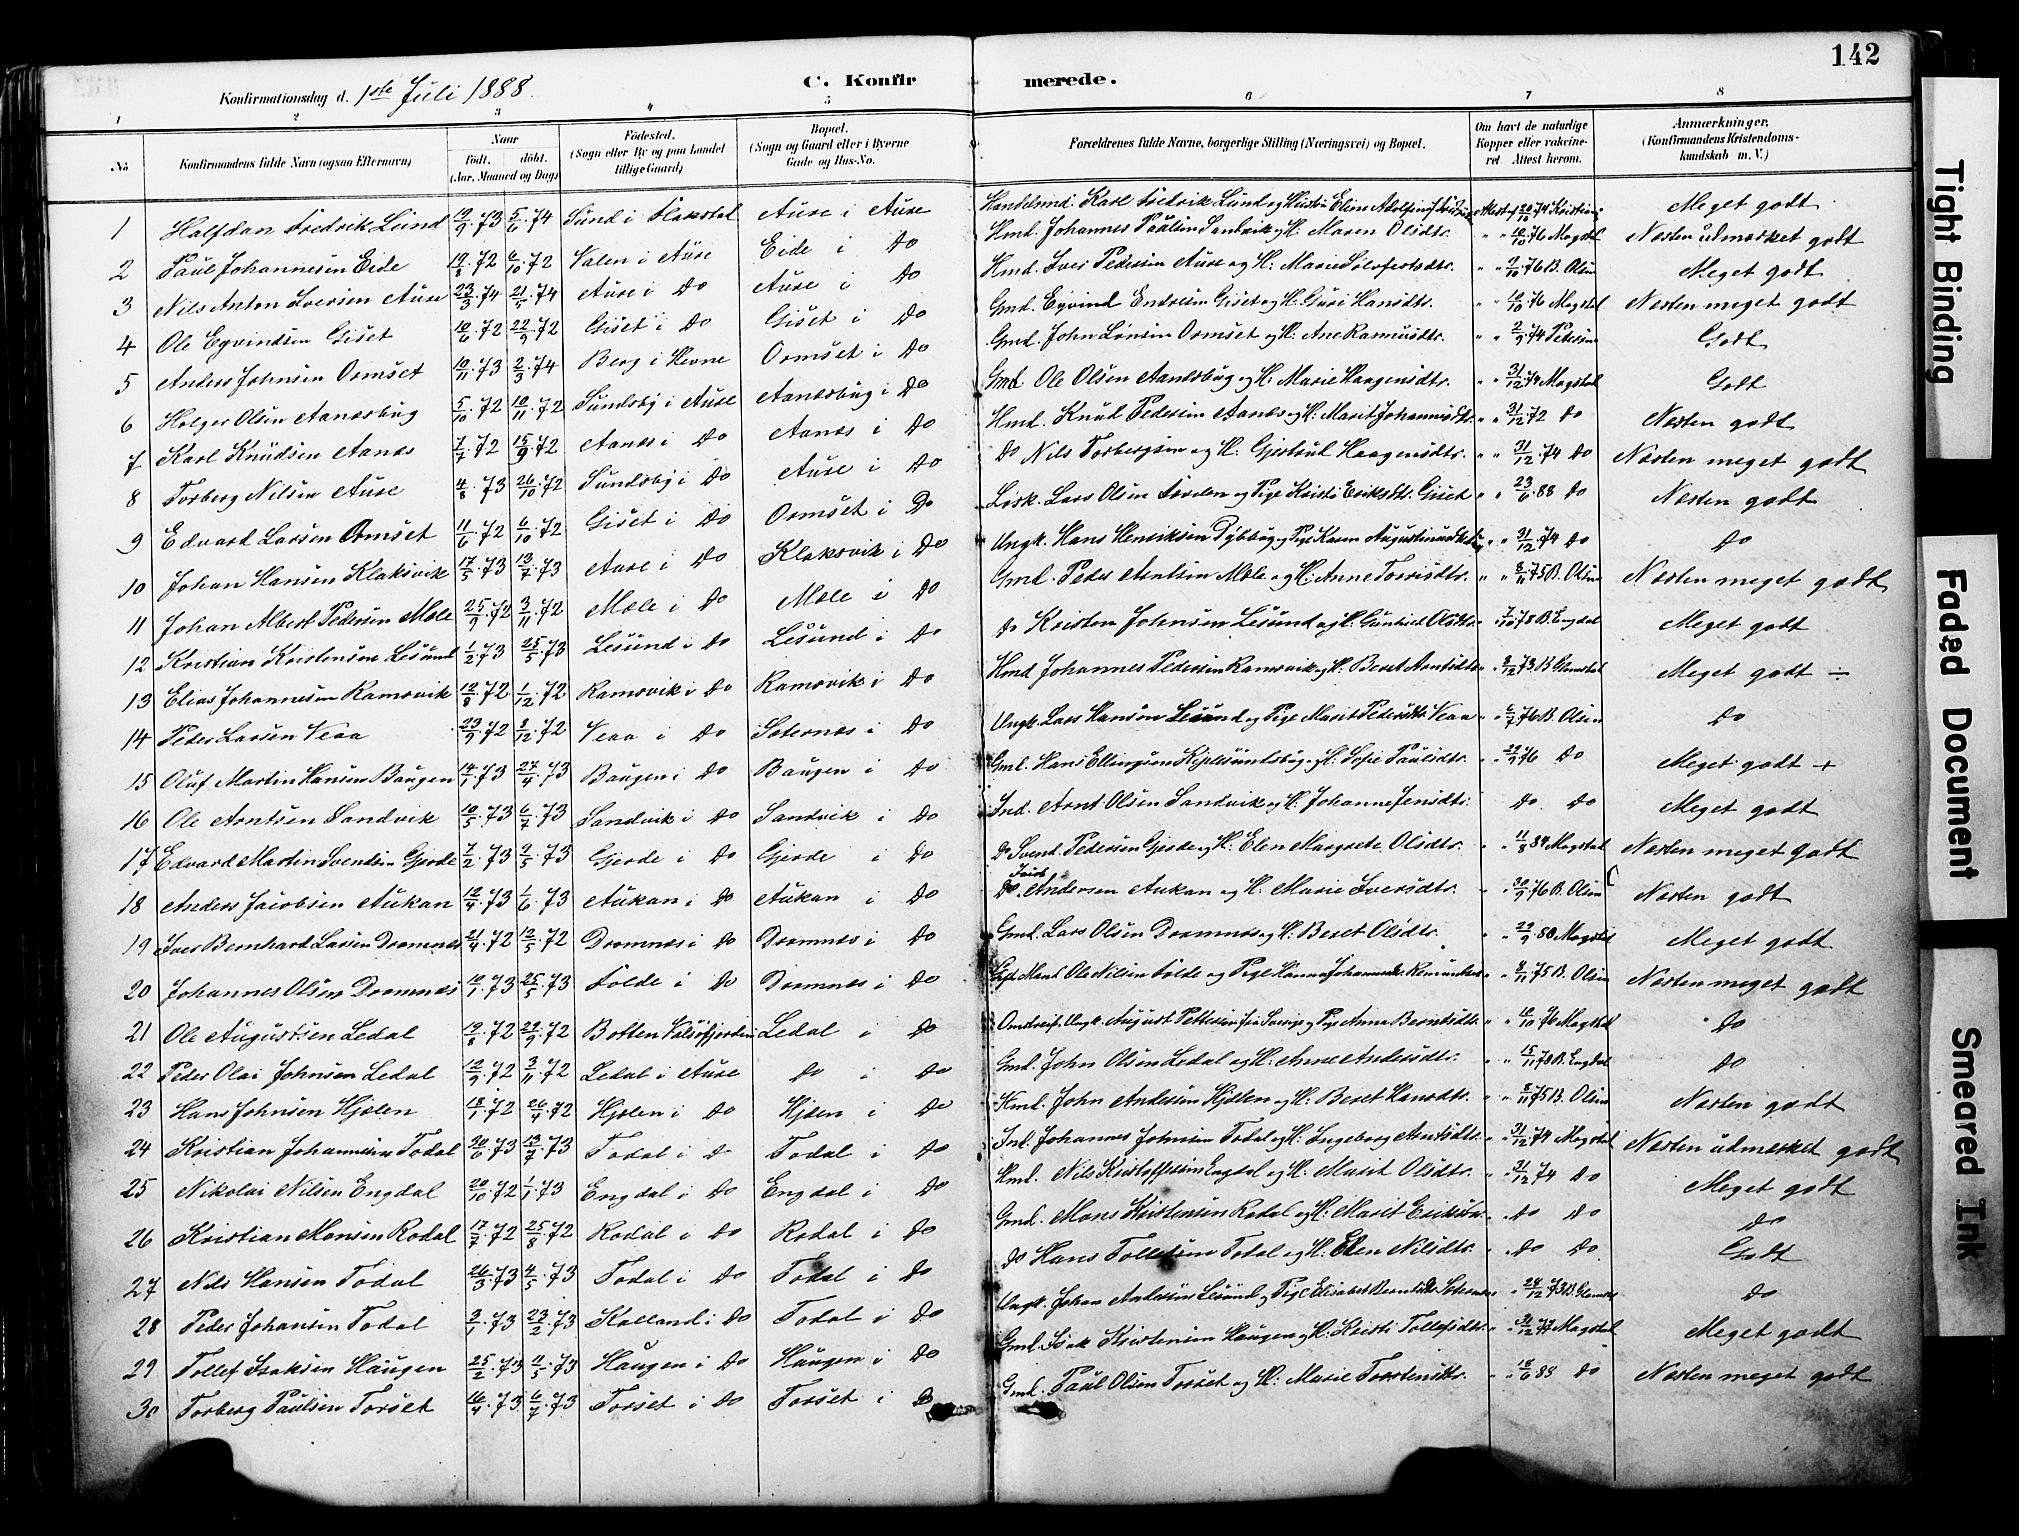 142
Konfirmationsdag d. 1ste Juli 1888.
C. Konfirmerede.
1 2 3 4 5 6 7 8
No
Konfirmandens fulde Navn (ogsaa Efternavn)
Naar
Födt. döbt.
(Aar, Maaned og Dag)
Födested.
(Sogn eller By og paa Landet
tillige Gaard)
Bopæl.
(Sogn og Gaard eller i Byerne
Gade og Hus-No.
Forældrenes fulde Navne, borgerlige Stilling (Næringsvei) og Bopæl.
Om havt de naturlige
Kopper eller vakcine-
ret. Attest herom.
Anmærkninger.
(Konfirmandens Kristendoms-
kundskab m. V.)
1 Halfdan Fredrik Lund 19/9 73 5/6 74 Sund i Flakstad Aure i Aure Handelsmd. Karl Fredrik Lund og Hustru Eline Adolfine Meget godt
2 Paul Johannesen Eide 19/8 72 6/10 72 Valen i Aure Eide i Do Hmd. Johannes Paulsen Sandvik og H. Maren Olsdtr. " " 10/10 76 Magstad Næsten udmærket godt
3 Nils Anton Iversen Aure 23/3 74 21/5 74 Aure i Do Aure i Do Hmd. Iver Pedersen Aure og H. Marie Sølvfestsdtr. " " 9/10 76 B. Olsen Meget godt
4 Ole Eyvindsen Giset 10/6 72 22/9 72 Giset i Do Giset i Do Gmd. Eyvind Endresen Giset og H. Guri Hansdtr. " " 10/10 76 Magstad Næsten meget godt
5 Anders Johnsen Ormset 10/11 73 2/3 74 Berg i Hevne Ormset i Do Gmd. John Lønsen Ormset og H. Ane Rasmusdtr. " " 2/9 74 Petersen Godt
6 Holger Olsen Aanæsbug 5/10 72 10/11 72 Sundsby i Aure Aanæsbug i Do Gmd. Ole Olsen Aanæsbug og H. Marie Haagensdtr. " " 31/12 74 Magstad Godt
7 Karl Knudsen Aanæs 7/7 72 15/9 72 Aanæs i Do Aanæs i Do Hmd. Knud Pedersen Aanæs og H. Marit Johannesdtr. " " 31/12 72 Do Næsten godt
8 Torberg Nilsen Aure 4/8 73 26/10 72 Sundsby i Do Aure i Do Do Nils Torbergsen og H. Gjertrud Haagensdtr. " " 31/12 74 Do Næsten meget godt
9 Edvard Larsen Ormset 11/6 72 6/10 72 Giset i Do Ormset i Do Løsk. Lars Olsen og Pige Kristi Eriksdtr. Giset " " 23/6 88 Do Næsten godt
10 Johan Hansen Klaksvik 17/5 73 13/7 73 Aure i Do Klaksvik i Do Ungk. Hans Henriksen Dybbug og Pige Karen " " 31/12 74 Do Do
11 Johan Albert Pedersen Mæle 25/9 72 3/11 72 Mæle i Do Mæle i Do Gmd. Peder Arntsen Mæle og H. Anne Torrisdtr. " " 8/11 75 B. Olsen Næsten meget godt
12 Kristian Kristensen Lesund 1/2 73 25/5 73 Lesund i Do Lesund i Do Do Kristen Johnsen Lesund og H. Gunhild Olsdtr. " 7/10 78 B. Engdal Meget godt
13 Elias Johannesen Ramsvik 12/8 72 1/12 72 Ramsvik i Do Ramsvik i Do Hmd Johannes Pedersen Ramsvik og H. Beret Arntsdtr. Meget godt ÷
14 Peder Larsen Veaa 23/9 72 8/12 72 Veaa i Do Sæternæs i Do Ungk. Lars Hansen Lesund og Pige Marit Pedersdtr. Veaa " 6/7 76 B. Olsen Do
15 Oluf Martin Hansen Baugen 14/1 73 27/4 73 Baugen i Do Baugen i Do Gmd. Hans Ellingsen og H. Sofie Paulsdtr. " 22/9 76 Do Meget godt +
16 Ole Arntsen Sandvik 10/5 73 6/7 73 Sandvik i Do Sandvik i Do Ind. Arnt Olsen Sandvik og H. Johanne Jensdtr. Do Do Meget godt
17 Edvard Martin Svendsen Gjerde 7/2 73 2/5 73 Gjerde i Do Gjerde i Do Do Svend Pedersen Gjerde og H. Elen Margrete Olsdtr. " 11/8 84 Magstad Næsten meget godt
18 Anders Jacobsen Aukan 12/4 73 1/6 73 Aukan i Do Aukan i Do Do Jacob Andersen Aukan og H. Marie Iversdtr. " 30/9 76 B. Olsen Næsten godt
19 Iver Bernhard Larsen Dromnæs 21/4 72 12/5 72 Dromnæs i Do Dromnæs i Do Gmd. Lars Olsen Dromnæs og H. Beret Olsdtr. " 22/9 80 Magstad Meget godt
20 Johannes Olsen Dromnæs 10/1 73 25/5 73 Folde i Do Dromnæs i Do Gift Mand Ole Nilsen Folde og Pige Hanna Johannesdtr. " 8/11 75 B. Olsen Næsten meget godt
21 Ole Augustsen Ledal 19/8 72 29/9 72 Botten Valsøfjorden Ledal i Do Ungk. August Pettersen fra Sverige og Pige Anna Berntsdtr. " " 10/10 76 Magstad Do
22 Peder Olai Johnsen Ledal 12/9 72 3/11 72 Ledal i Aure Do i Do Gmd. John Olsen Ledal og H. Anne Andersdtr. " " 15/11 78 B. Engdal Do
23 Hans Johnsen Hjælen 18/1 72 26/4 72 Hjælen i Do Hjælen i Do Hmd. John Andersen Hjælen og H. Beret Hansdtr. " " 8/11 75 B. Olsen Næsten godt
24 Kristian Johannesen Todal 20/6 73 13/7 73 Todal i D Todal i Do Ind. Johannes Johnsen Todal og H. Ingeborg Arntsdtr. " 31/12 74 Magstad Næsten udmærket godt
25 Nikolai Nilsen Engdal 20/10 72 1/1 73 Engdal i Do Engdal i Do Hmd. Nils Kristoffersen Engdal og H. Marit Olsdtr. " 31/12 74 Do Meget godt
26 Kristian Monsen Rodal 17/7 72 25/8 72 Rodal i Do Rodal i Do Gmd. Mons Kristensen Rodal og H. Marit Eriksdtr. " Do Do Do
27 Nils Hansen Todal 26/3 73 4/5 73 Todal i Do Todal i Do Do Hans Tollefsen Todal og H. Elen Nilsdtr. " Do Do Godt
28 Peder Johansen Todal 3/1 73 23/2 73 Kalland i Do Todal i Do Ungk. Johan Andersen Lesund og Pige Elisabet Do
29 Tollef Isaksen Haugen 25/2 73 4/5 73 Haugen i Do Haugen i Do Gmd. Isak Kristensen Haugen og H. Kristi Tollefsdtr. " 31/12 74 Magstad Meget godt
30 Torberg Paulsen Torset 16/4 73 6/7 73 Torset i Do Torset i Do Gmd. Paul Olsen Torset og H. Marie Torstensdtr. " " 18/6 88 Do Næsten meget godt
Tight Binding
Faded Document
Smeared Ink